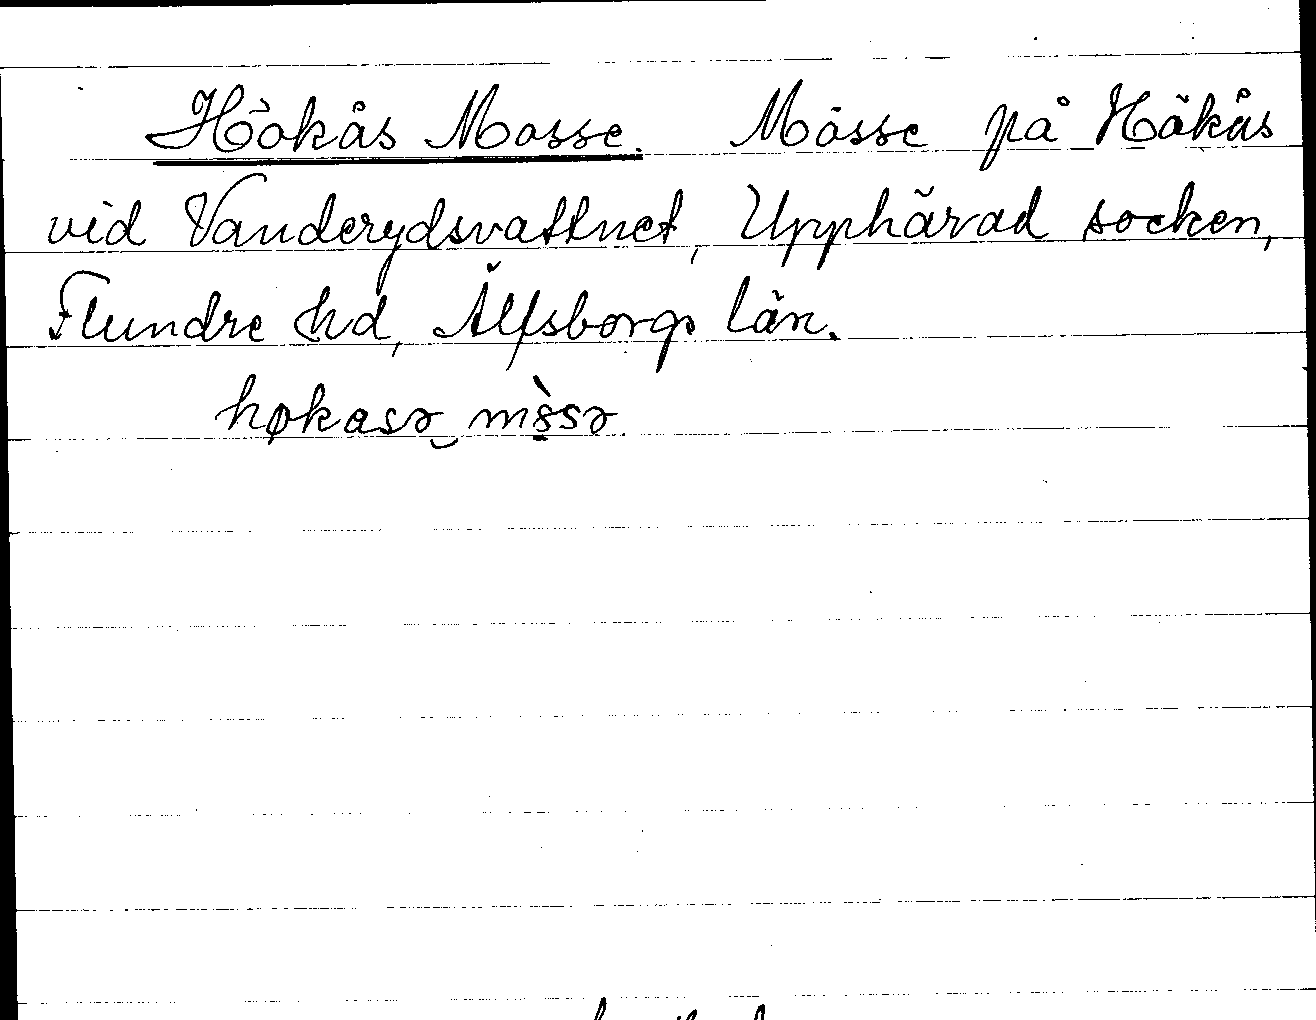 Hökås Mosse. Mosse på Håkås
vid Vanderydsvattnet, Upphärad socken,
Flundre hd, Älfsborgs län.
høkasə mɞ̀sə